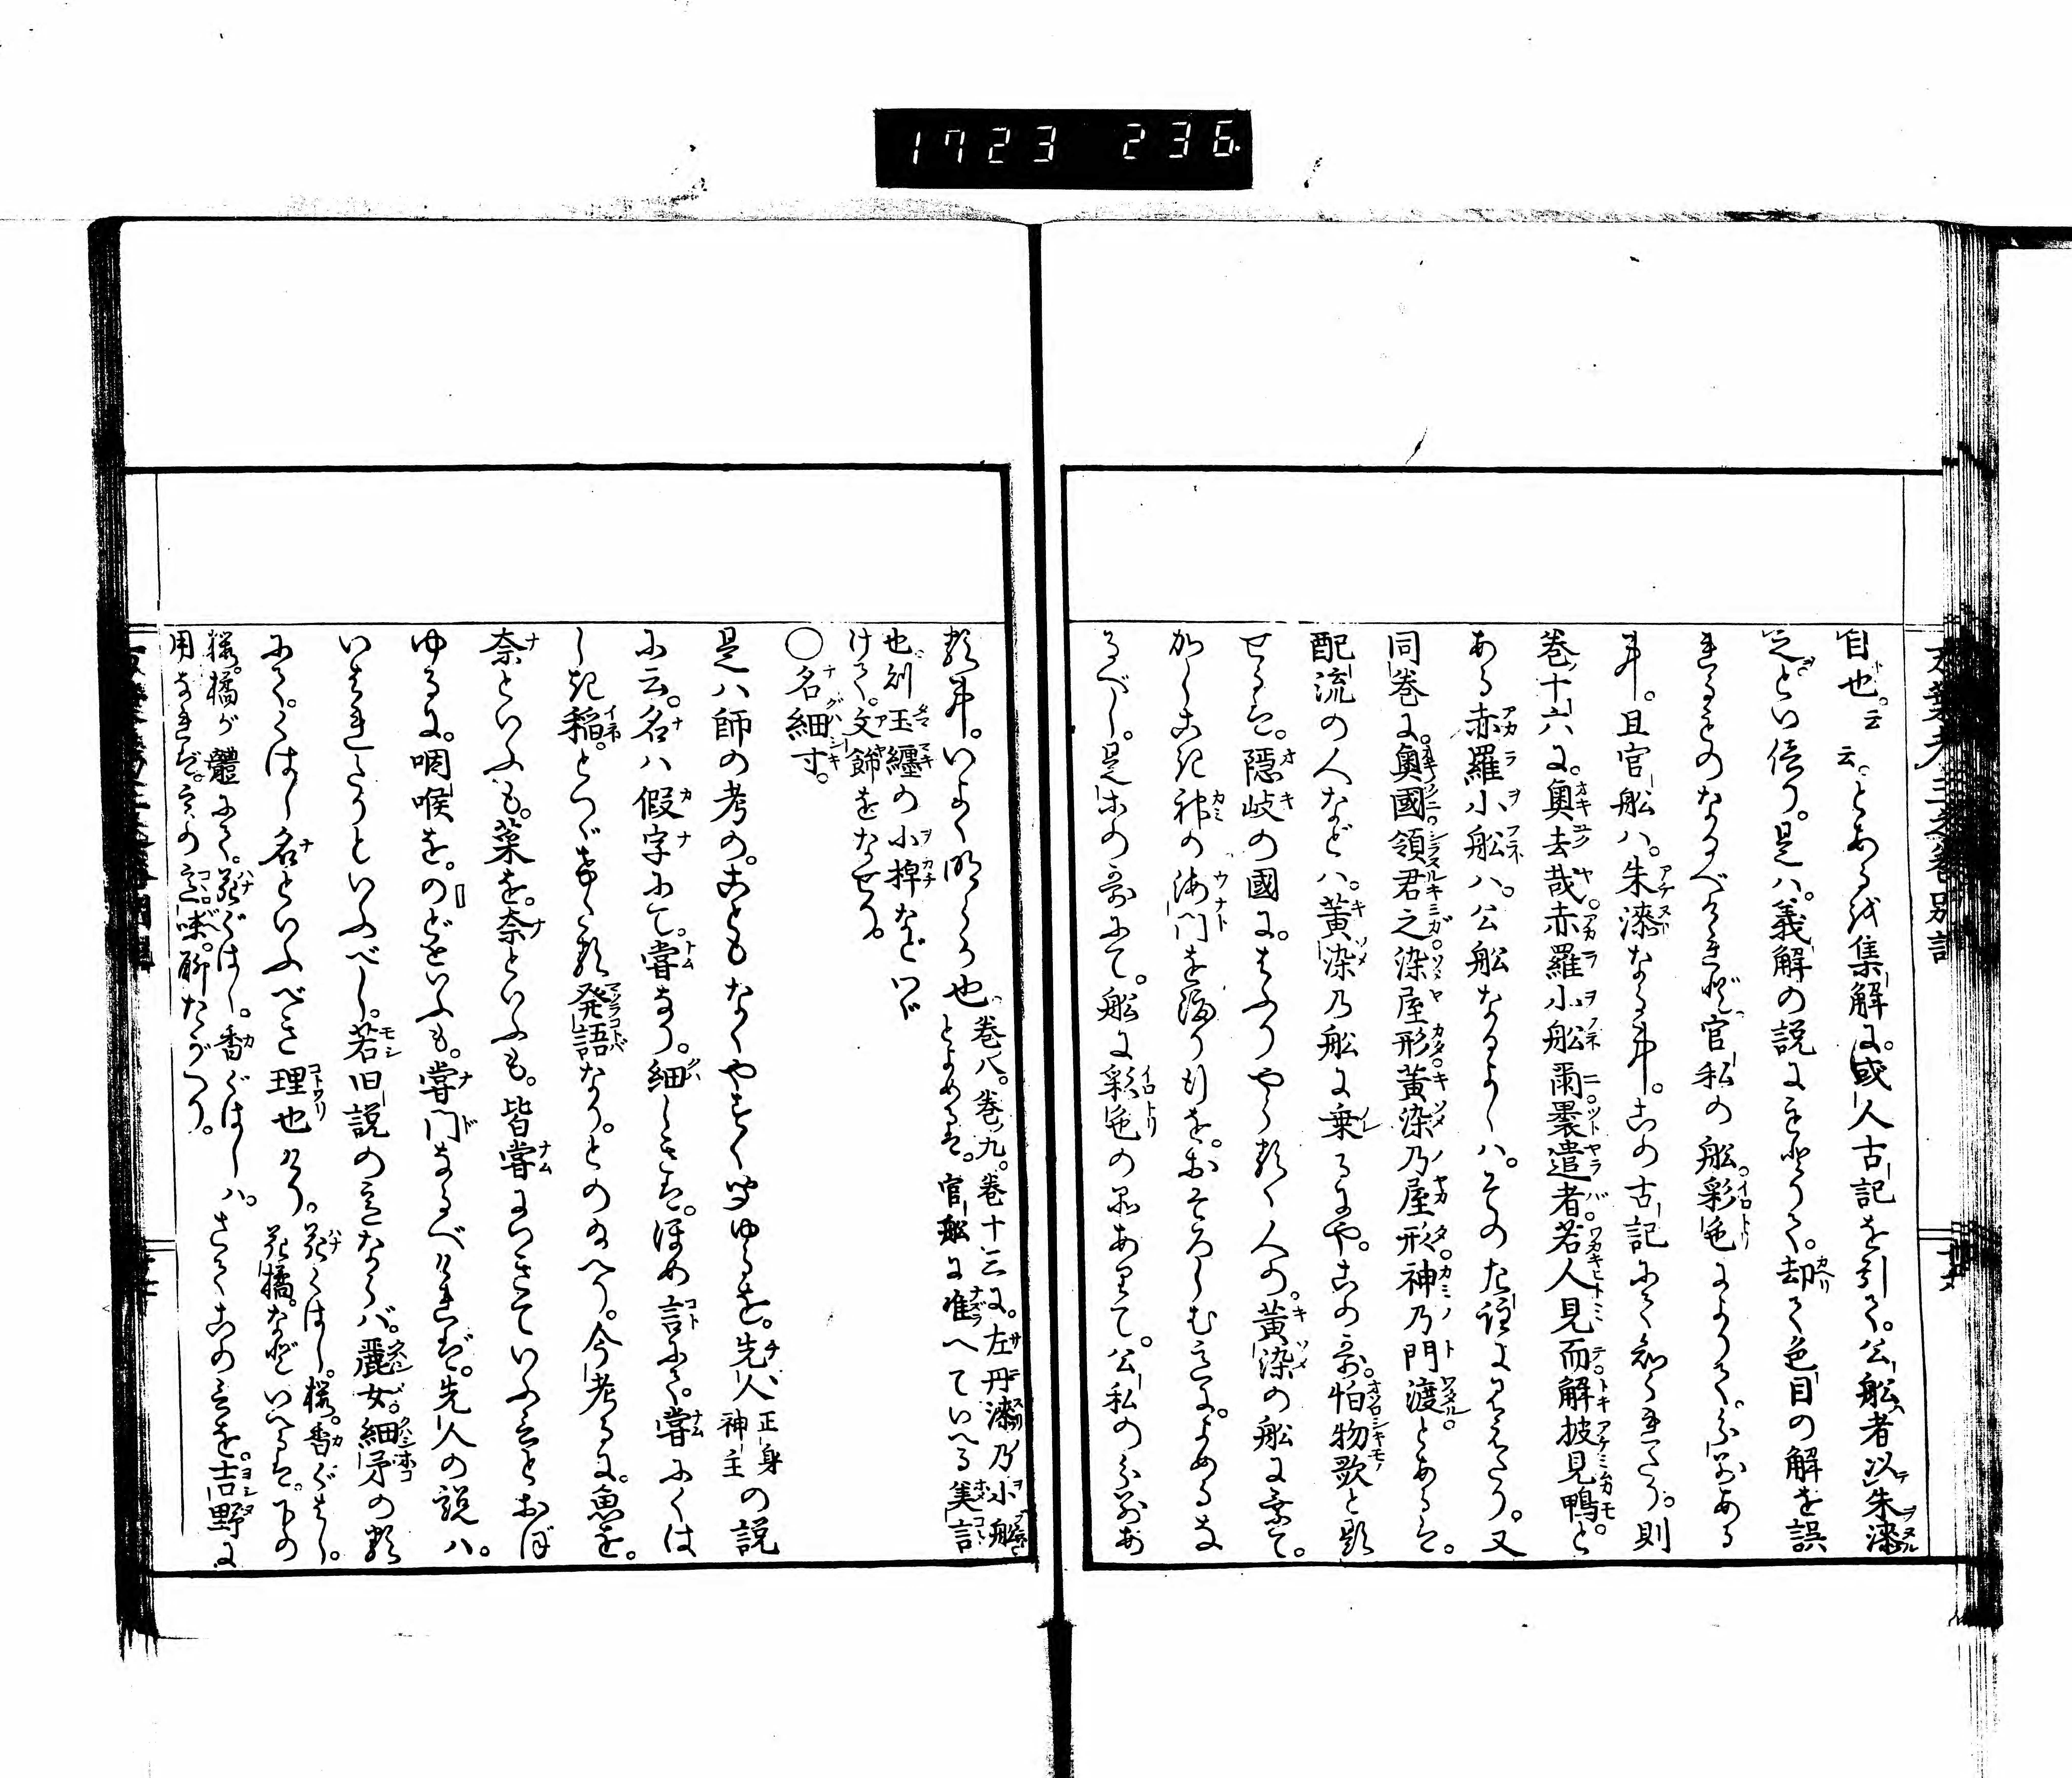 1723 236
万葉考三之巻別記
目也。云云。とあるを集解に。或人古記を引て。公船者以朱漆
之といへり。是ハ。義解の説にもとりて。却て色目の解を誤
れるものなるべけれど。官私の船。彩色によりて。分別ある
事。且官船ハ。朱漆なる事。この古記にて知られたり。則
巻十六に。奥去哉赤羅小船爾裹遣者若人見而解披見鴨と
ある赤羅小船ハ。公船なるよしハ。その左註にみえたり。又
同巻に。奥國領君之染屋形黄染乃屋形神乃門渡とあるは。
配流の人などハ。黄染乃船に乗るにや。この哥。怕物歌と題
せるは。隠岐の國に。はふりやらるゝ人の。黄染の船に乗て。
かしこき神の海門を渡り行を。おそろしむ意に。よめるな
るべし。是ホの哥にて。船に彩色の品ありて。公私の分別あ
る事。いよゝ明らか也。巻八。巻九。巻十三に。左丹漆乃小船
とよめるは。官船に准へていへる美言
也。別玉纏の小楫など
つゞけて。文餝をなせり。
〇名細寸。
是ハ師の考の。こともなくやすく聞ゆるを。先人正身神主の説
に云。名ハ假字にて。嘗なり。細しきは。ほめ言にて。嘗にくは
しき稲。とつゞけたる発語なり。とのたまへり。今考るに。魚を。
奈といふも。菜を。奈といふも。皆嘗にいきていふ言とおぼ
ゆるに。咽喉を。のどといふも。嘗門なるべければ。先人の説ハ。
いはれたりといふべし。若旧説の意ならバ。麗女。細矛の類
にて。くはし名といふべき理也けり。花ぐはし。桜。香ぐはし。
花橘。などいへるは。下の
桜。橘が體にて。花ぐはし。香ぐはし。ハ。
用なれば。言の意味。聊たがへり。
さてこの言を。吉野に